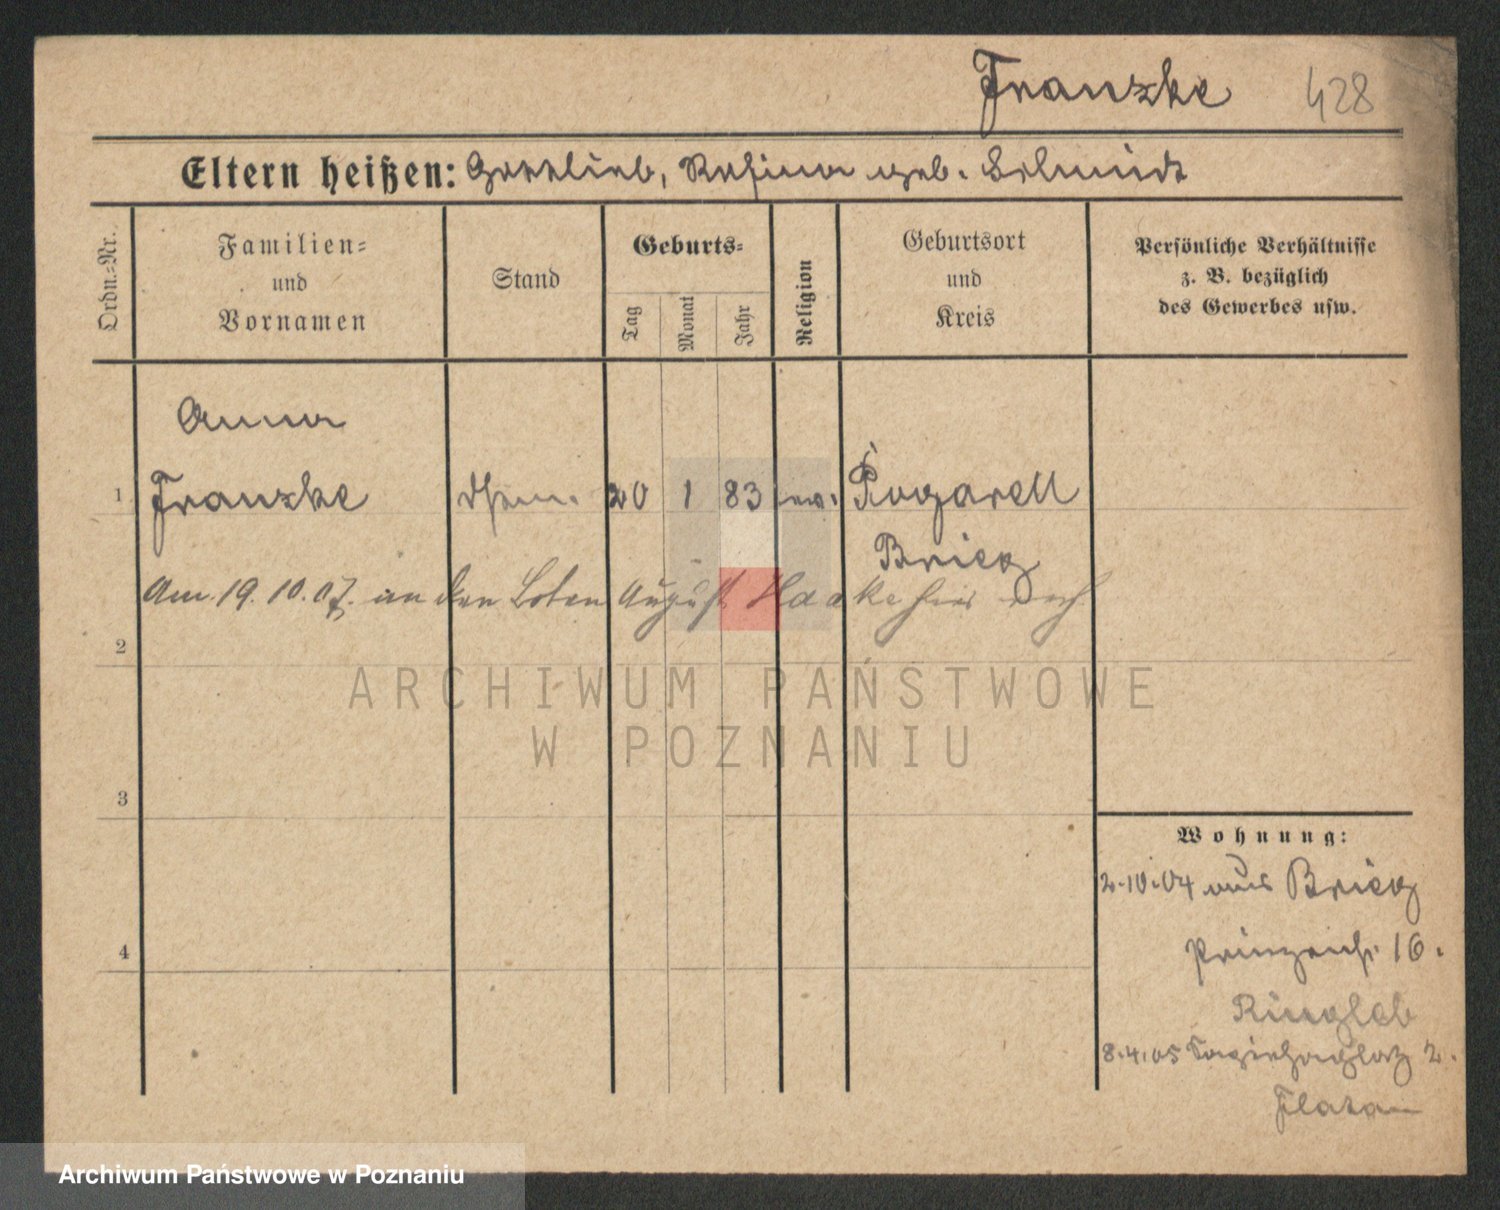 Franzke 428
Eltern heißen: Gottlieb, Rosina geb. Schmidt
Ordn.-Nr.
Familien-
und
Vornamen
Stand
Geburts-
Tag
Monat
Jahr
Religion
Geburtsort
und
Kreis
Persönliche Verhältnisse
z. B. bezüglich
des Gewerbes usw.
Anna
1 Franzke 20 1 83 ev. Rogarell
Brieg
Am 19.10.07. an den Boten August Haake hier
2
ARCHIWUM PAŃSTWOWE
W POZNANIU
3
Wohnung:
2.10.04 aus Brieg
Prinzenstr. 16.
Ringleb
4
8.4.05 Sapiehaplatz 2.
Flatau
Archiwum Państwowe w Poznaniu